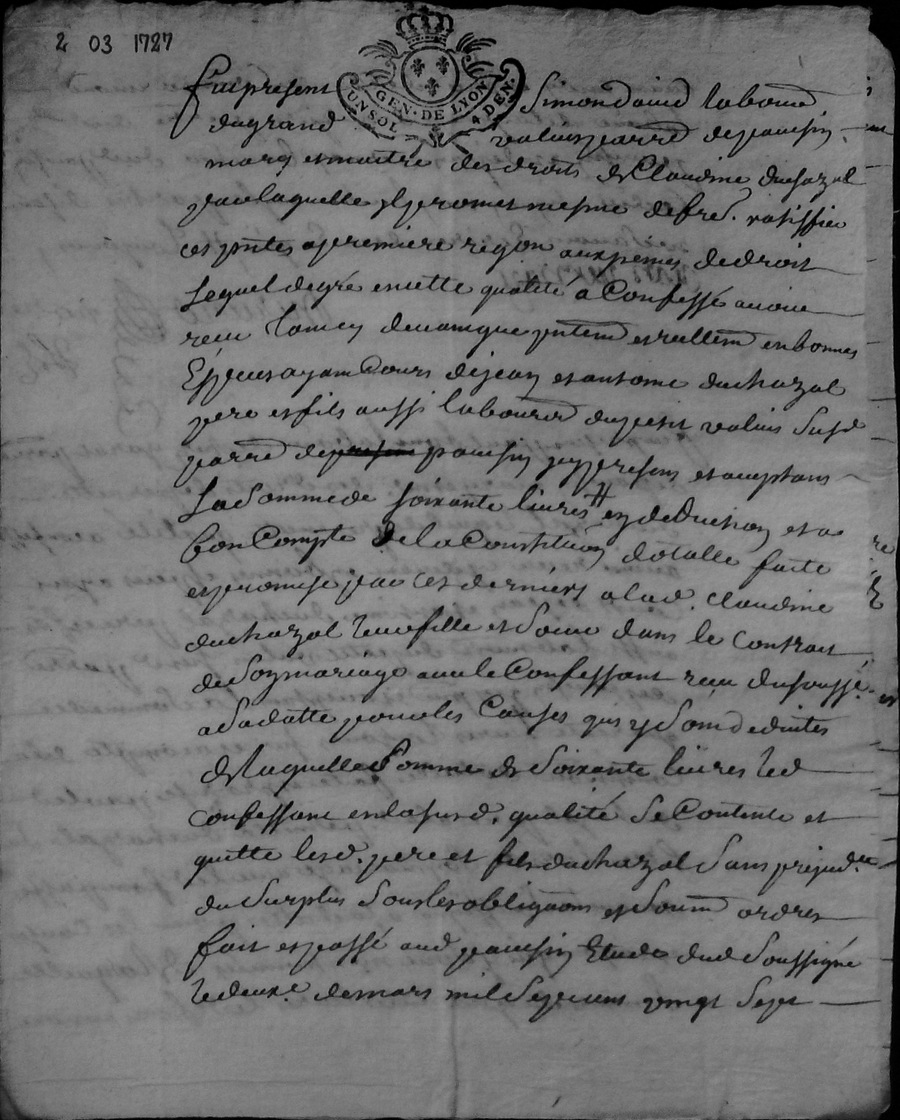 2 03 1727
GEN. DE LYON
UN SOL 4 DEN.
Fut present Simond laboure
du grand valois parre de pouusin
mary et maitre des droits de Claudine duchazal
par laquelle yl promet mesme de fre. ratiffier
ces pntes a premiere reqon aux peines de droit
Lequel de gré en cette qualité a Confessé avoir
receu en bonnes
Especes ayant Cours de jean et antoine duchazal
pere et fils aussi laboure du petit valois susd
parre de pouusin ycy presens et acceptans
La Somme de soixante livres en deduction et a
bon Compte de la Constitution dotalle faite
et promise par ces derniers a lad. Claudine
duchazal leur fille et soeur dans le Contrat
de son mariage avec le Confessant receu du soussé.
a sa datte pour les Causes qui y sont deduites
de laquelle somme de soixante livres led
Confessant en la susd. qualité Se Contente et
quitte lesd. pere et fils duchazal Sans prejud.
du Surplus Sous les obligaons et Soum ordres
fait et passé aud pouusin Etude dud Soussigné
le deuxe. de mars mil Sept cens vingt Sept